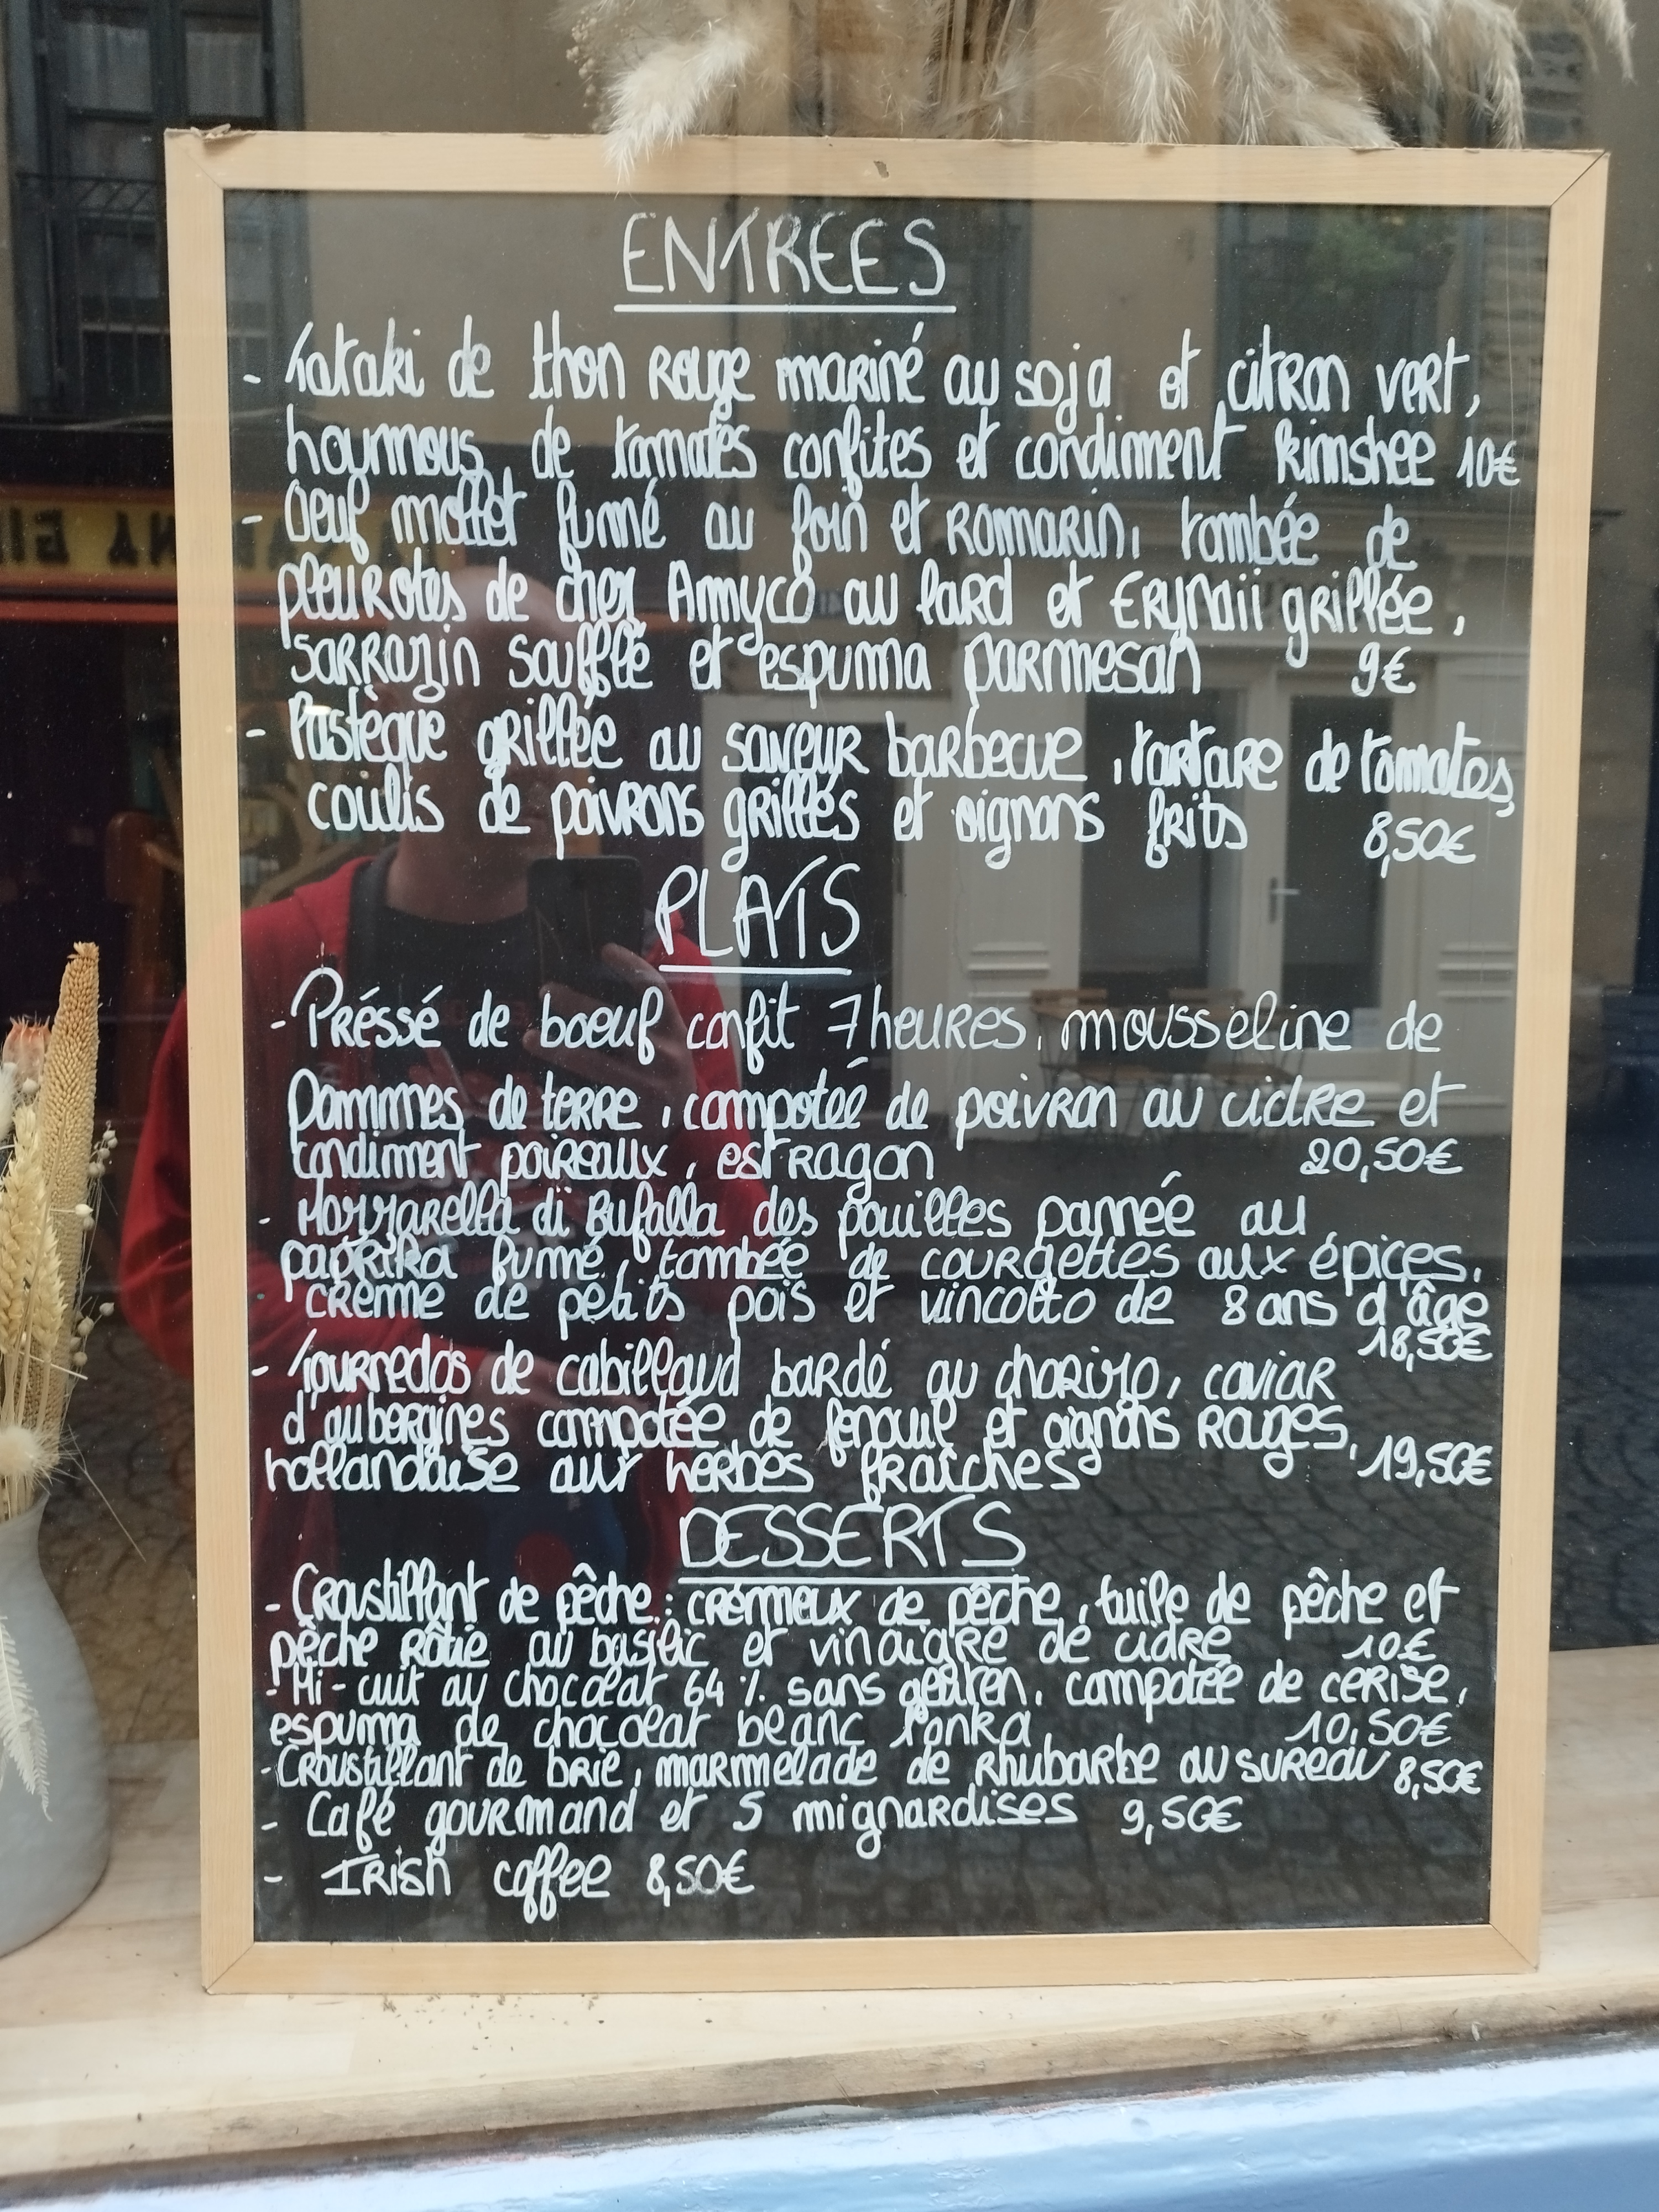 ENTREES
- Tataki de thon rouge mariné au soja et citron vert,
houmous de tomates confites et condiment kimshee 10€
- Oeuf mollet fumé au foin et romarin, tombée de
pleurotes de chez Amyco au lard et Erynaii grillée,
sarrazin soufflé et espuma parmesan 9€
- Pastèque grillée au saveur barbecue, tartare de tomates,
coulis de poivrons grillés et oignons frits 8,50€
PLATS
- Préssé de boeuf confit 7 heures, mousseline de
Pommes de terre, compotée de poivron au cidre et
condiment poireaux, estragon 20,50€
- Mozzarella di Bufalla des pouilles pannée au
paprika fumé, tombée de courgettes aux épices,
crème de petits pois et vincotto de 8 ans d'âge
18,50€
- Tournedos de cabillaud bardé au chorizo, caviar
d'aubergines compotée de fenouil et oignons rouges,
hollandaise aux herbes fraîches 19,50€
DESSERTS
- Croustillant de pêche : crémeux de pêche, tuile de pêche et
pêche rôtie au basilic et vinaigre de cidre 10€
- Mi-cuit au chocolat 64 % sans gluten, compotée de cerise,
espuma de chocolat blanc Tonka 10,50€
- Croustillant de brie, marmelade de rhubarbe au sureau 8,50€
- Café gourmand et 5 mignardises 9,50€
- Irish coffee 8,50€